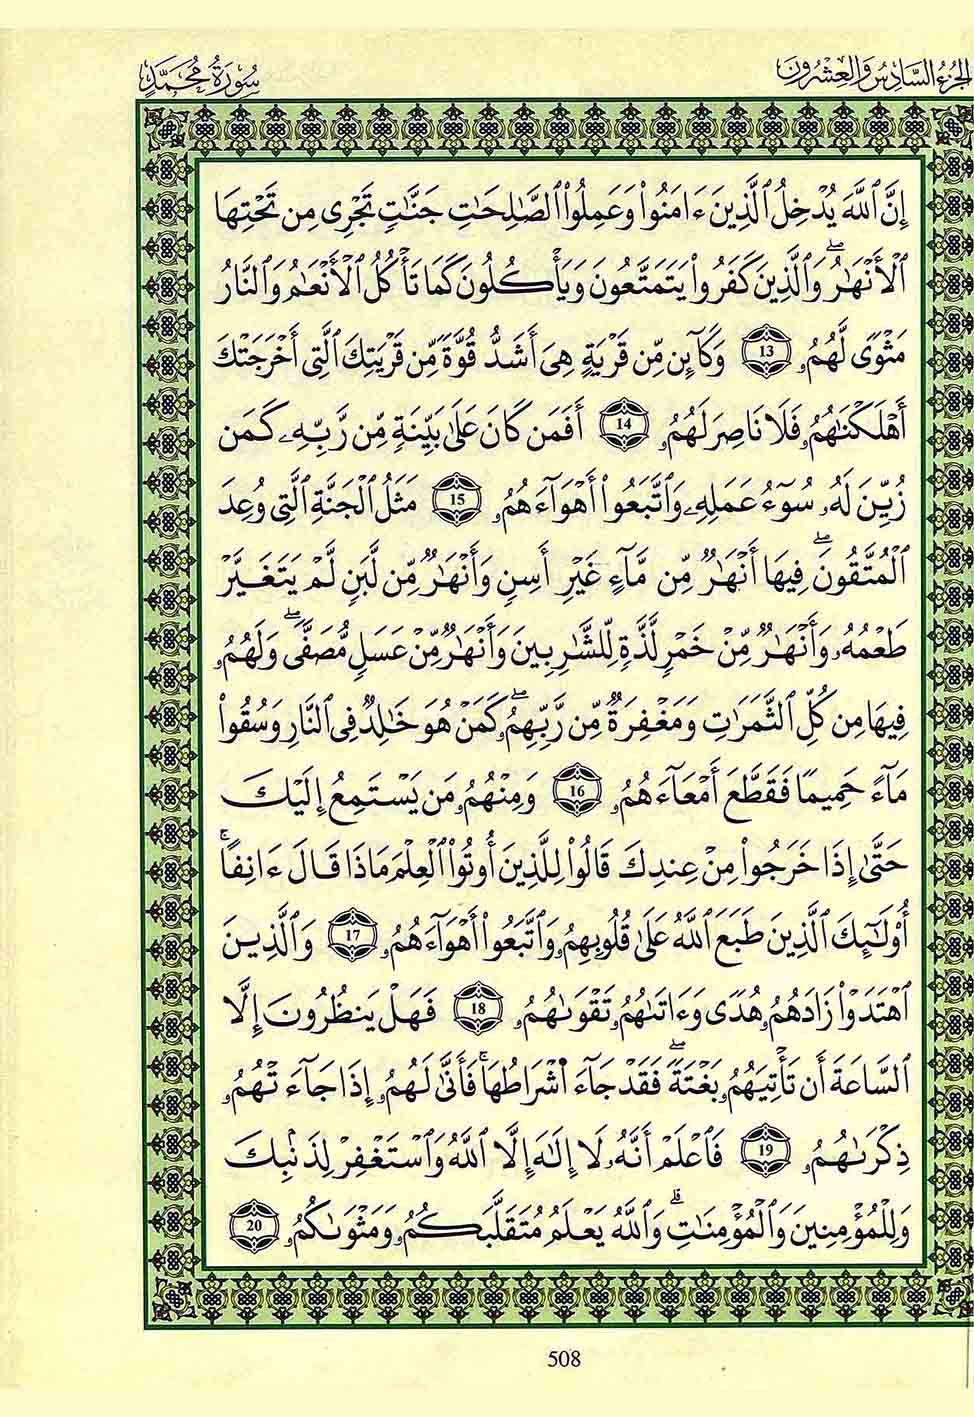 الجزء السادس والعشرون
سورة محمد
إِنَّ ٱللَّهَ يُدْخِلُ ٱلَّذِينَ ءَامَنُوا۟ وَعَمِلُوا۟ ٱلصَّٰلِحَٰتِ جَنَّٰتٍ تَجْرِى مِن تَحْتِهَا
ٱلْأَنْهَٰرُ ۖ وَٱلَّذِينَ كَفَرُوا۟ يَتَمَتَّعُونَ وَيَأْكُلُونَ كَمَا تَأْكُلُ ٱلْأَنْعَٰمُ وَٱلنَّارُ
مَثْوًى لَّهُمُۥ 13 وَكَآئِن مِّن قَرْيَةٍ هِىَ أَشَدُّ قُوَّةً مِّن قَرْيَتِكَ ٱلَّتِى أَخْرَجَتْكَ
أَهْلَكْنَٰهُمُۥ فَلَا نَاصِرَ لَهُمُۥ 14 أَفَمَن كَانَ عَلَىٰ بَيِّنَةٍ مِّن رَّبِّهِۦ كَمَن
زُيِّنَ لَهُۥ سُوٓءُ عَمَلِهِۦ وَٱتَّبَعُوٓا۟ أَهْوَآءَهُمُۥ 15 مَثَلُ ٱلْجَنَّةِ ٱلَّتِى وُعِدَ
ٱلْمُتَّقُونَ ۖ فِيهَا أَنْهَٰرٌ مِّن مَّآءٍ غَيْرِ أَسِنٍ وَأَنْهَٰرٌ مِّن لَّبَنٍ لَّمْ يَتَغَيَّرْ
طَعْمُهُۥ وَأَنْهَٰرٌ مِّنْ خَمْرٍ لَّذَّةٍ لِّلشَّٰرِبِينَ وَأَنْهَٰرٌ مِّنْ عَسَلٍ مُّصَفًّى ۖ وَلَهُمُۥ
فِيهَا مِن كُلِّ ٱلثَّمَرَٰتِ وَمَغْفِرَةٌ مِّن رَّبِّهِمُۥ ۖ كَمَنْ هُوَ خَٰلِدٌ فِى ٱلنَّارِ وَسُقُوا۟
مَآءً حَمِيمًا فَقَطَّعَ أَمْعَآءَهُمُۥ 16 وَمِنْهُمُۥ مَن يَسْتَمِعُ إِلَيْكَ
حَتَّىٰ إِذَا خَرَجُوا۟ مِنْ عِندِكَ قَالُوا۟ لِلَّذِينَ أُوتُوا۟ ٱلْعِلْمَ مَاذَا قَالَ ءَانِفًا ۚ
أُو۟لَٰٓئِكَ ٱلَّذِينَ طَبَعَ ٱللَّهُ عَلَىٰ قُلُوبِهِمُۥ وَٱتَّبَعُوا۟ أَهْوَآءَهُمُۥ 17 وَٱلَّذِينَ
ٱهْتَدَوْا۟ زَادَهُمُۥ هُدًى وَءَاتَىٰهُمُۥ تَقْوَىٰهُمُۥ 18 فَهَلْ يَنظُرُونَ إِلَّا
ٱلسَّاعَةَ أَن تَأْتِيَهُمُۥ بَغْتَةً ۖ فَقَدْ جَآءَ ا۬شْرَاطُهَا ۚ فَأَنَّىٰ لَهُمُۥ إِذَا جَآءَتْهُمُۥ
ذِكْرَىٰهُمُۥ 19 فَٱعْلَمْ أَنَّهُۥ لَا إِلَٰهَ إِلَّا ٱللَّهُ وَٱسْتَغْفِرْ لِذَنۢبِكَ
وَلِلْمُؤْمِنِينَ وَٱلْمُؤْمِنَٰتِ ۗ وَٱللَّهُ يَعْلَمُ مُتَقَلَّبَكُمُۥ وَمَثْوَىٰكُمُۥ 20
508